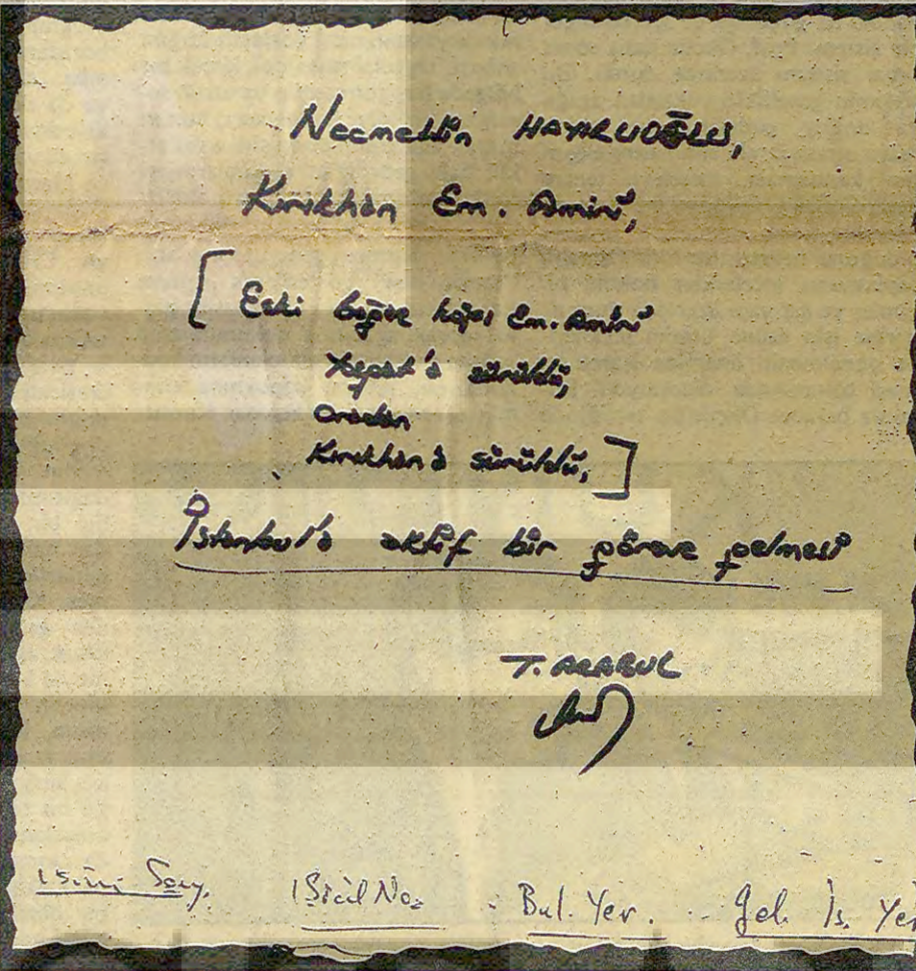 Necmettin HAYIRLIOĞLU,
Kırıkhan Em. Amiri,
[ Eski Em. Amiri
Yozgat'a sürüldü,
Oradan
Kırıkhan'a sürüldü, ]
İstanbul'a aktif bir göreve gelmesi
T. AKABUL
İsmi Soy. Sicil No: Bul. Yer. Gel. İs. Yer